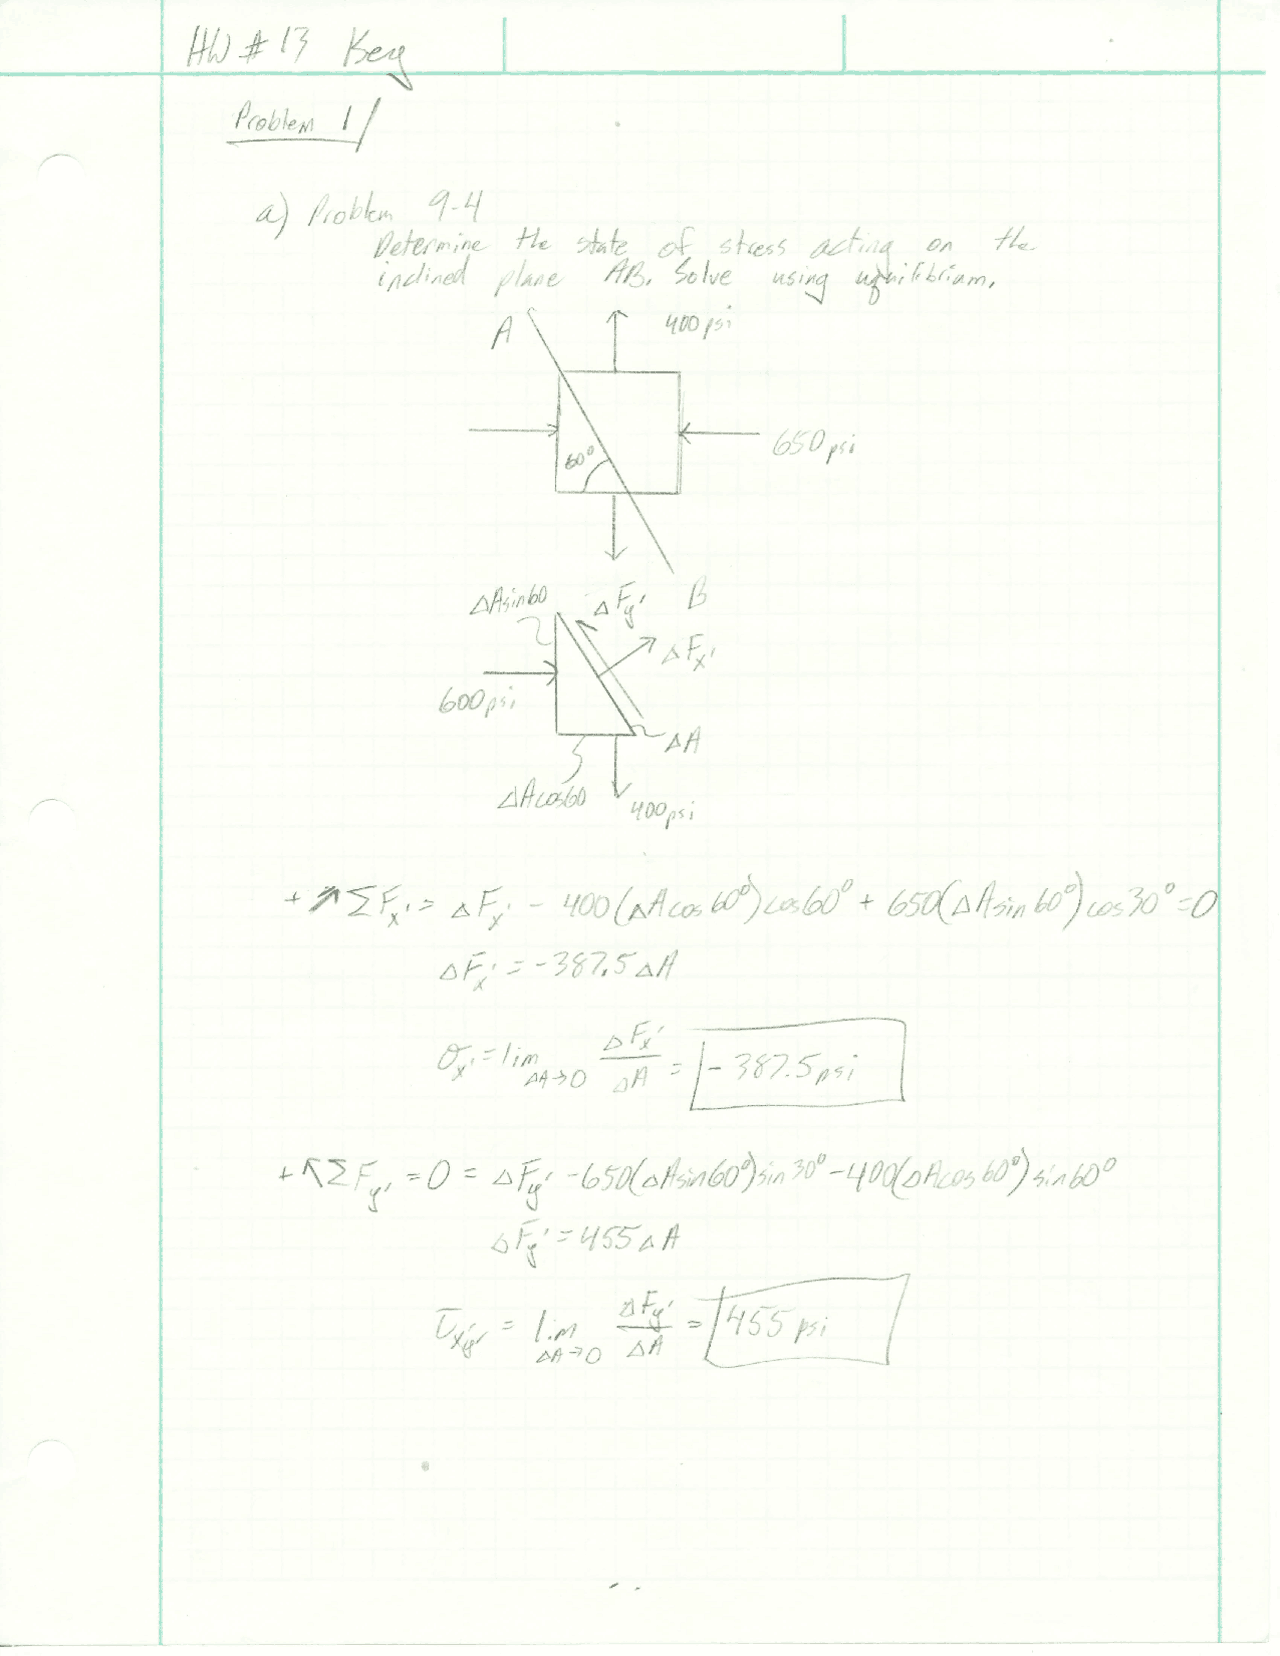 HW # 13 Key
Problem 1
a) Problem 9-4
Determine the state of stress acting on the
inclined plane AB. Solve using equilibrium.
A
400 psi
650 psi
60°
B
ΔA sin60
ΔFy'
ΔFx'
600 psi
ΔA
ΔA cos60
400 psi
+ ↗ ΣFx' = ΔFx' - 400(ΔA cos 60°) cos 60° + 650(ΔA sin 60°) cos 30° = 0
ΔFx' = -387.5 ΔA
σx' = lim ΔA→0 ΔFx'/ΔA = -387.5 psi
+ ↖ ΣFy' = 0 = ΔFy' - 650(ΔA sin 60°) sin 30° - 400(ΔA cos 60°) sin 60°
ΔFy' = 455 ΔA
τx'y' = lim ΔA→0 ΔFy'/ΔA = 455 psi